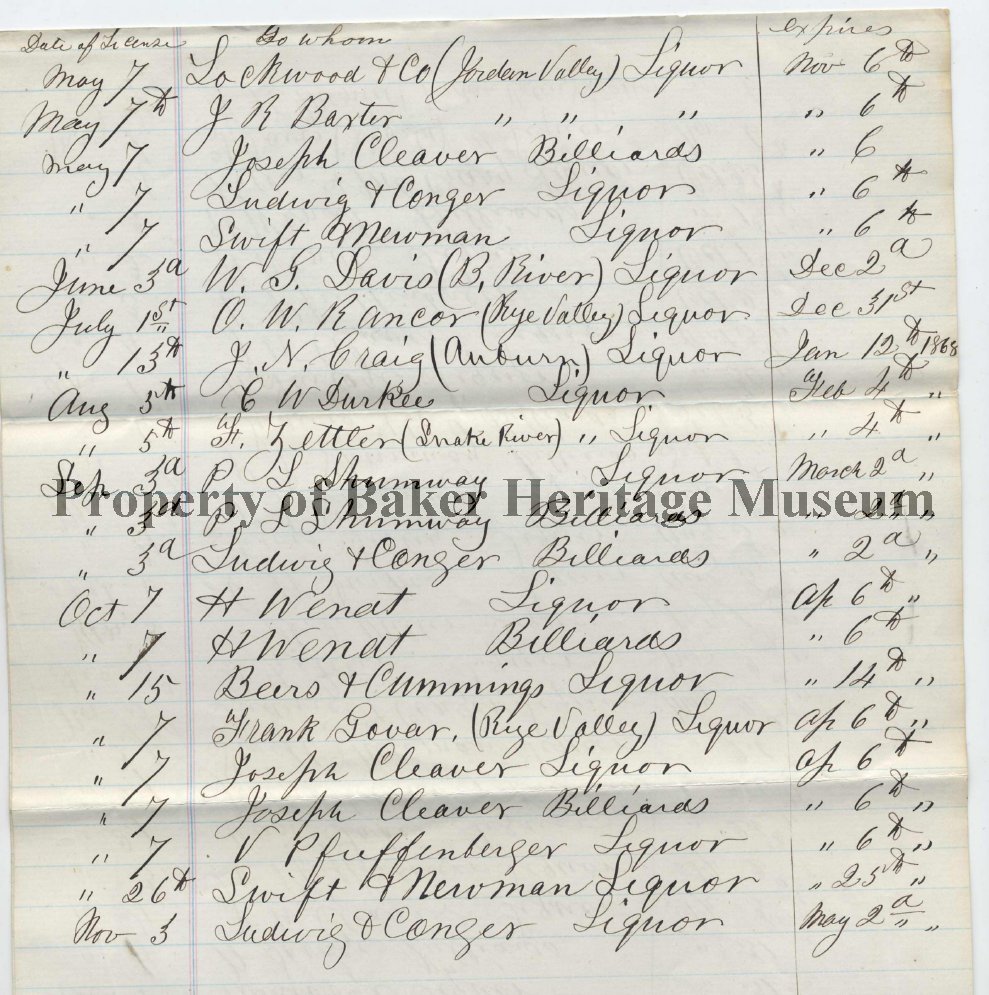 Date of License To whom expires
May 7 Lockwood & Co (Jordan Valley) Liquor Nov 6th
May 7th J R Baxter " " " " 6th
May 7 Joseph Cleaver Billiards " 6
" 7 Ludwig & Conger Liquor " 6th
" 7 Swift & Newman Liquor " 6th
June 3d W. G. Davis (B. River) Liquor Dec 2d
July 1st O. W. Rancor (Rye Valley) Liquor Dec 31st
" 13th J. N. Craig (Auburn) Liquor Jan 12th 1868
Aug 5th C W Durkee Liquor Feb 4th "
" 5th F. Zettler (Snake River) " Liquor " 4th "
Sep 3d P L Shumway Liquor March 2d "
Property of Baker Heritage Museum
" 3d P. L Shumway Billiards " 2d "
" 3d Ludwig & Conger Billiards " 2d "
Oct 7 H Wendt Liquor Ap 6th "
" 7 H Wendt Billiards " 6th
" 15 Beers & Cummings Liquor " 14th "
" 7 Frank Govar. (Rye Valley) Liquor Ap 6th "
" 7 Joseph Cleaver Liquor Ap 6th
" 7 Joseph Cleaver Billiards " 6th "
" 7 V Pfuffenberger Liquor " 6th "
" 26th Swift & Newman Liquor " 25th "
Nov 3 Ludwig & Conger Liquor May 2d "